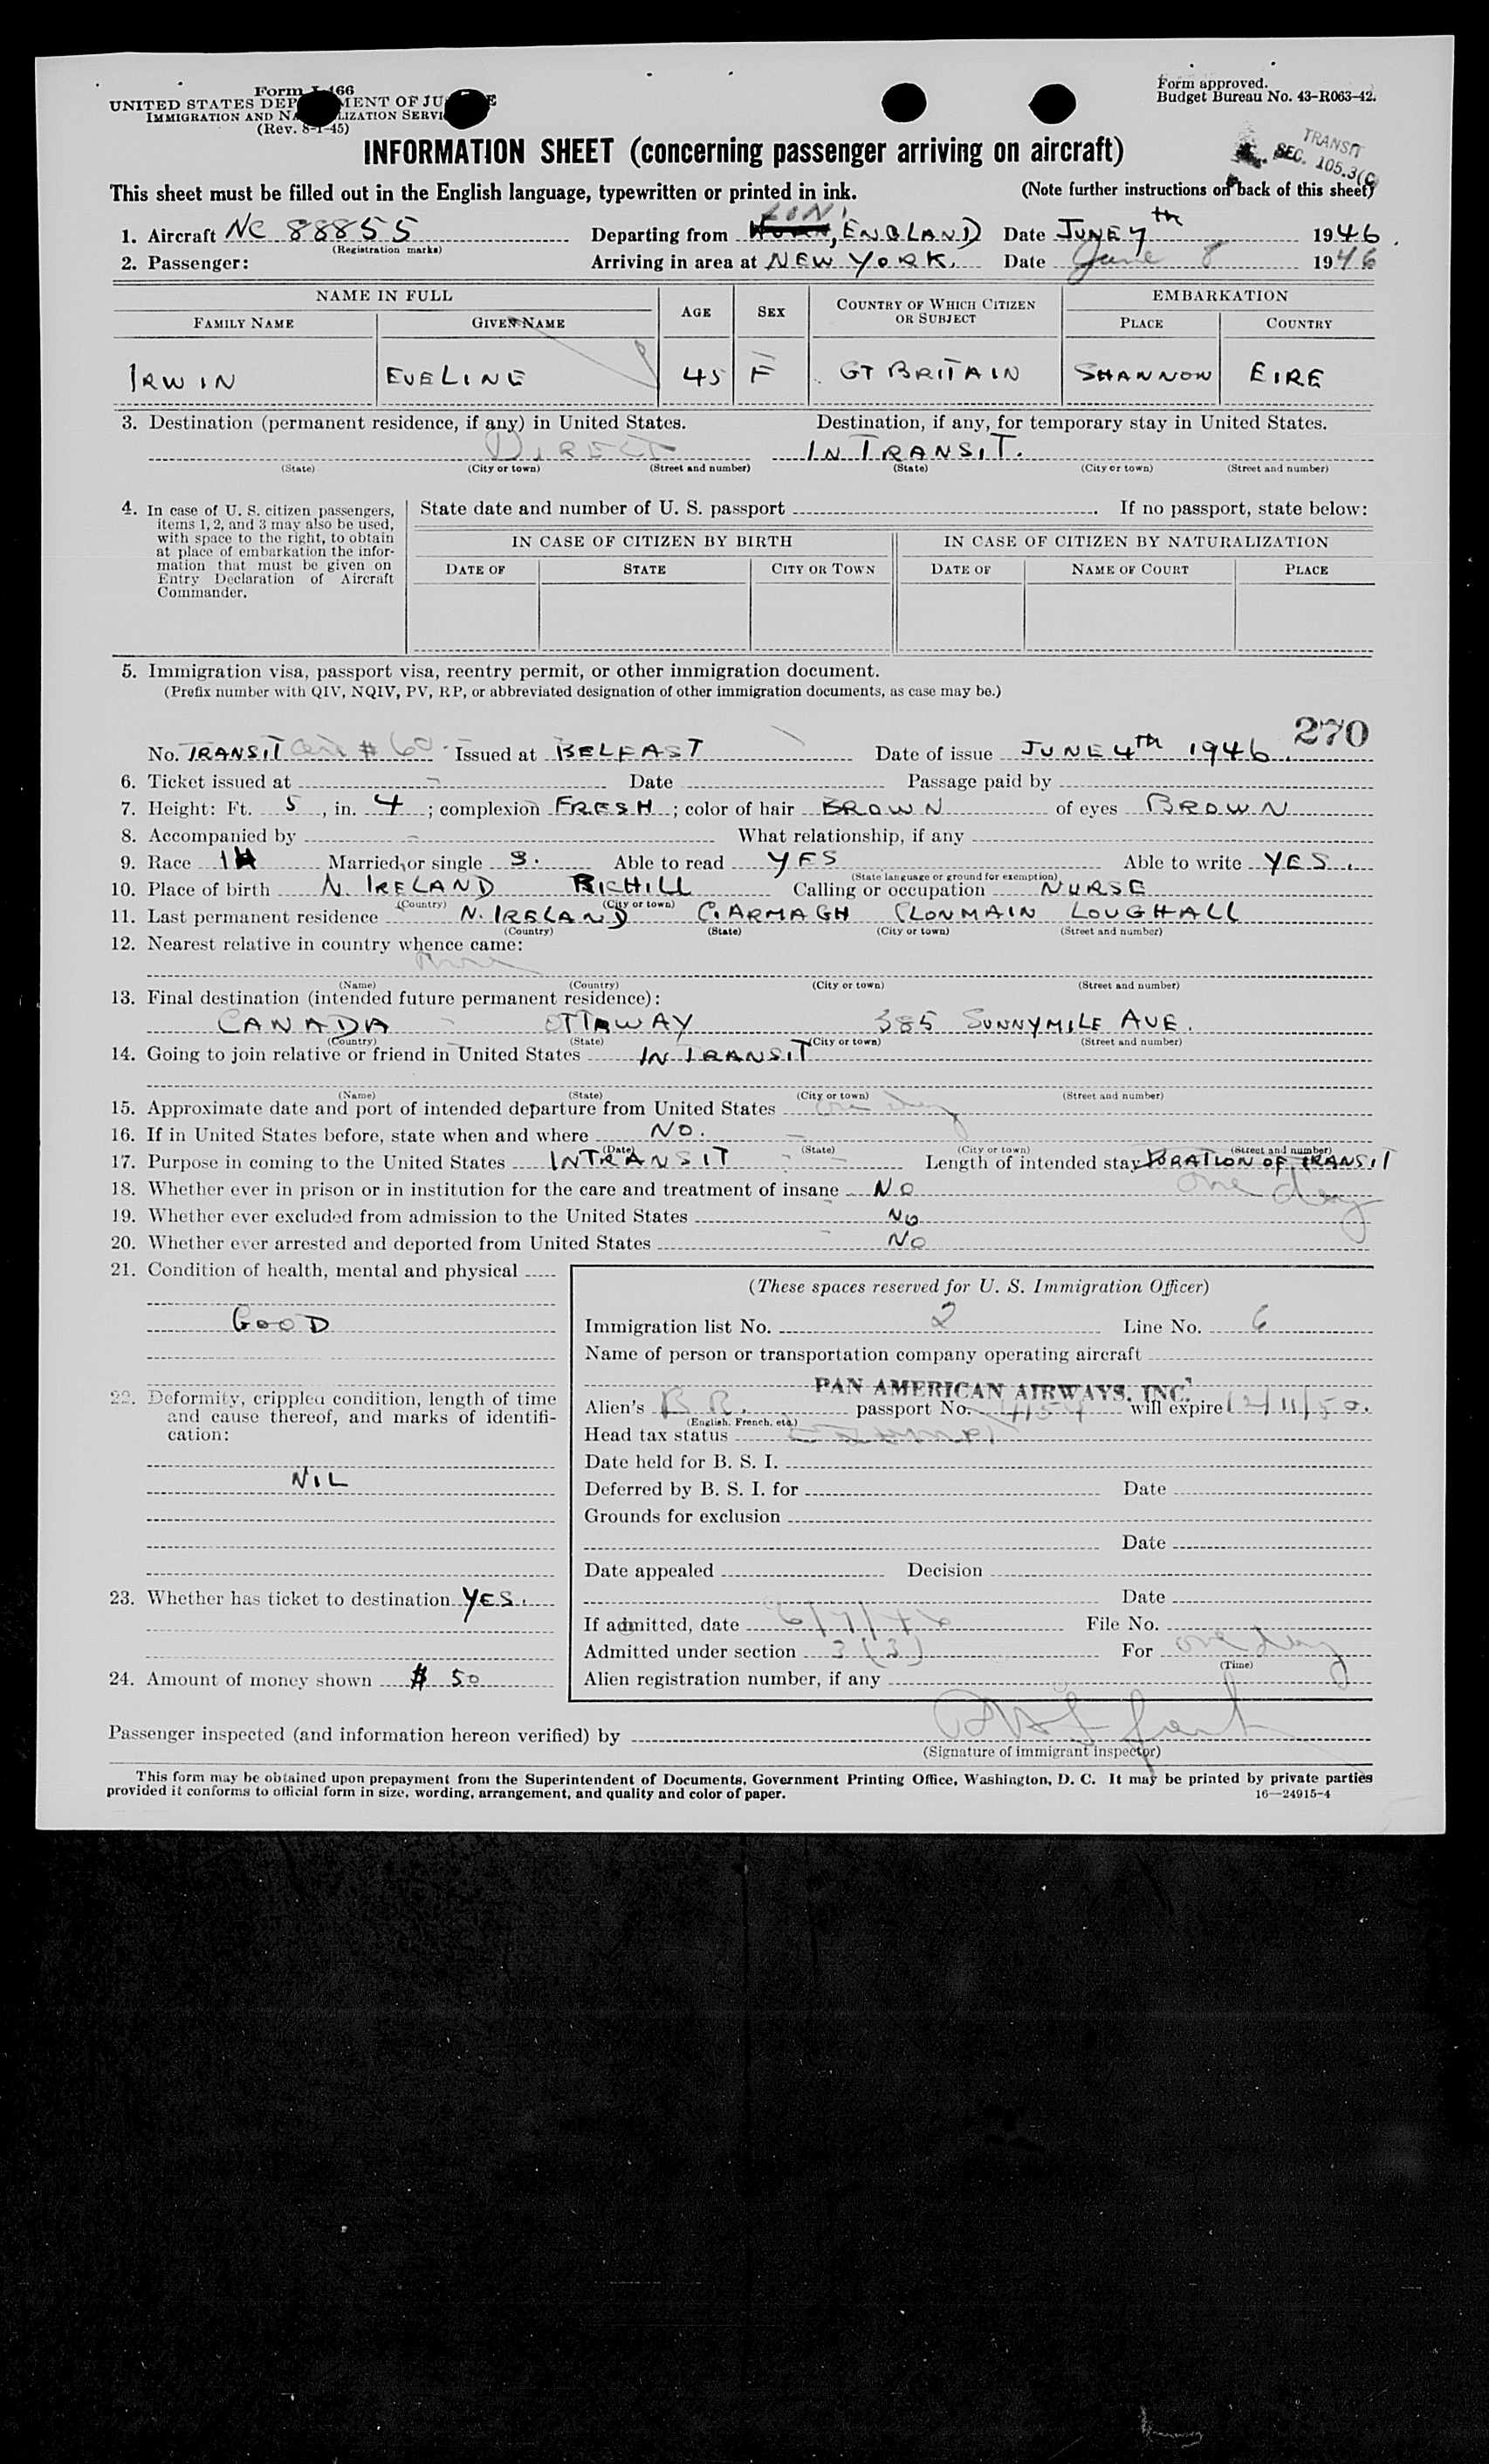 Form I-466
UNITED STATES DEPARTMENT OF JUSTICE
IMMIGRATION AND NATURALIZATION SERVICE
(Rev. 8-1-45)
Form approved.
Budget Bureau No. 43-R063-42.
TRANSIT
SEC. 105.3(C)
INFORMATION SHEET (concerning passenger arriving on aircraft)
This sheet must be filled out in the English language, typewritten or printed in ink. (Note further instructions on back of this sheet)
LON.
1. Aircraft NC 88855 Departing from , ENGLAND Date JUNE 7th 1946.
(Registration marks)
2. Passenger: Arriving in area at NEW YORK. Date June 8 1946
NAME IN FULL AGE SEX COUNTRY OF WHICH CITIZEN OR SUBJECT EMBARKATION
FAMILY NAME GIVEN NAME PLACE COUNTRY
IRWIN EVELINE 45 F GT BRITAIN SHANNON EIRE
3. Destination (permanent residence, if any) in United States. Destination, if any, for temporary stay in United States.
DIRECT IN TRANSIT.
(State) (City or town) (Street and number) (State) (City or town) (Street and number)
4. In case of U. S. citizen passengers, items 1, 2, and 3 may also be used, with space to the right, to obtain at place of embarkation the information that must be given on Entry Declaration of Aircraft Commander.
State date and number of U. S. passport . If no passport, state below:
IN CASE OF CITIZEN BY BIRTH IN CASE OF CITIZEN BY NATURALIZATION
DATE OF STATE CITY OR TOWN DATE OF NAME OF COURT PLACE
5. Immigration visa, passport visa, reentry permit, or other immigration document.
(Prefix number with QIV, NQIV, PV, RP, or abbreviated designation of other immigration documents, as case may be.)
270
No. TRANSIT Cert # 60 Issued at BELFAST Date of issue JUNE 4th 1946.
6. Ticket issued at - Date Passage paid by
7. Height: Ft. 5, in. 4; complexion FRESH; color of hair BROWN of eyes BROWN
8. Accompanied by - What relationship, if any
9. Race Married, or single S. Able to read YES Able to write YES.
(State language or ground for exemption)
10. Place of birth N. IRELAND RICHILL Calling or occupation NURSE
(Country) (City or town)
11. Last permanent residence N. IRELAND C. ARMAGH CLONMAIN LOUGHALL
(Country) (State) (City or town) (Street and number)
12. Nearest relative in country whence came:
(Name) (Country) (City or town) (Street and number)
13. Final destination (intended future permanent residence):
CANADA - OTTAWAY 385 SUNNYMILE AVE.
(Country) (State) (City or town) (Street and number)
14. Going to join relative or friend in United States IN TRANSIT
(Name) (State) (City or town) (Street and number)
15. Approximate date and port of intended departure from United States one day
16. If in United States before, state when and where NO.
(Date) (State) (City or town) (Street and number)
17. Purpose in coming to the United States INTRANSIT Length of intended stay DURATION OF TRANSIT
one day
18. Whether ever in prison or in institution for the care and treatment of insane NO
19. Whether ever excluded from admission to the United States NO
20. Whether ever arrested and deported from United States NO
21. Condition of health, mental and physical
GOOD
22. Deformity, crippled condition, length of time and cause thereof, and marks of identification:
NIL
23. Whether has ticket to destination YES.
24. Amount of money shown $ 50
(These spaces reserved for U. S. Immigration Officer)
Immigration list No. 2 Line No. 6
Name of person or transportation company operating aircraft
PAN AMERICAN AIRWAYS, INC.
Alien's BR. passport No. will expire 12/11/50.
(English, French, etc.)
Head tax status Exempt
Date held for B. S. I.
Deferred by B. S. I. for Date
Grounds for exclusion
Date
Date appealed Decision
Date
If admitted, date 6/7/46 File No.
Admitted under section 3 (3) For one day
(Time)
Alien registration number, if any
Passenger inspected (and information hereon verified) by
(Signature of immigrant inspector)
This form may be obtained upon prepayment from the Superintendent of Documents, Government Printing Office, Washington, D. C. It may be printed by private parties
provided it conforms to official form in size, wording, arrangement, and quality and color of paper. 16—24915-4